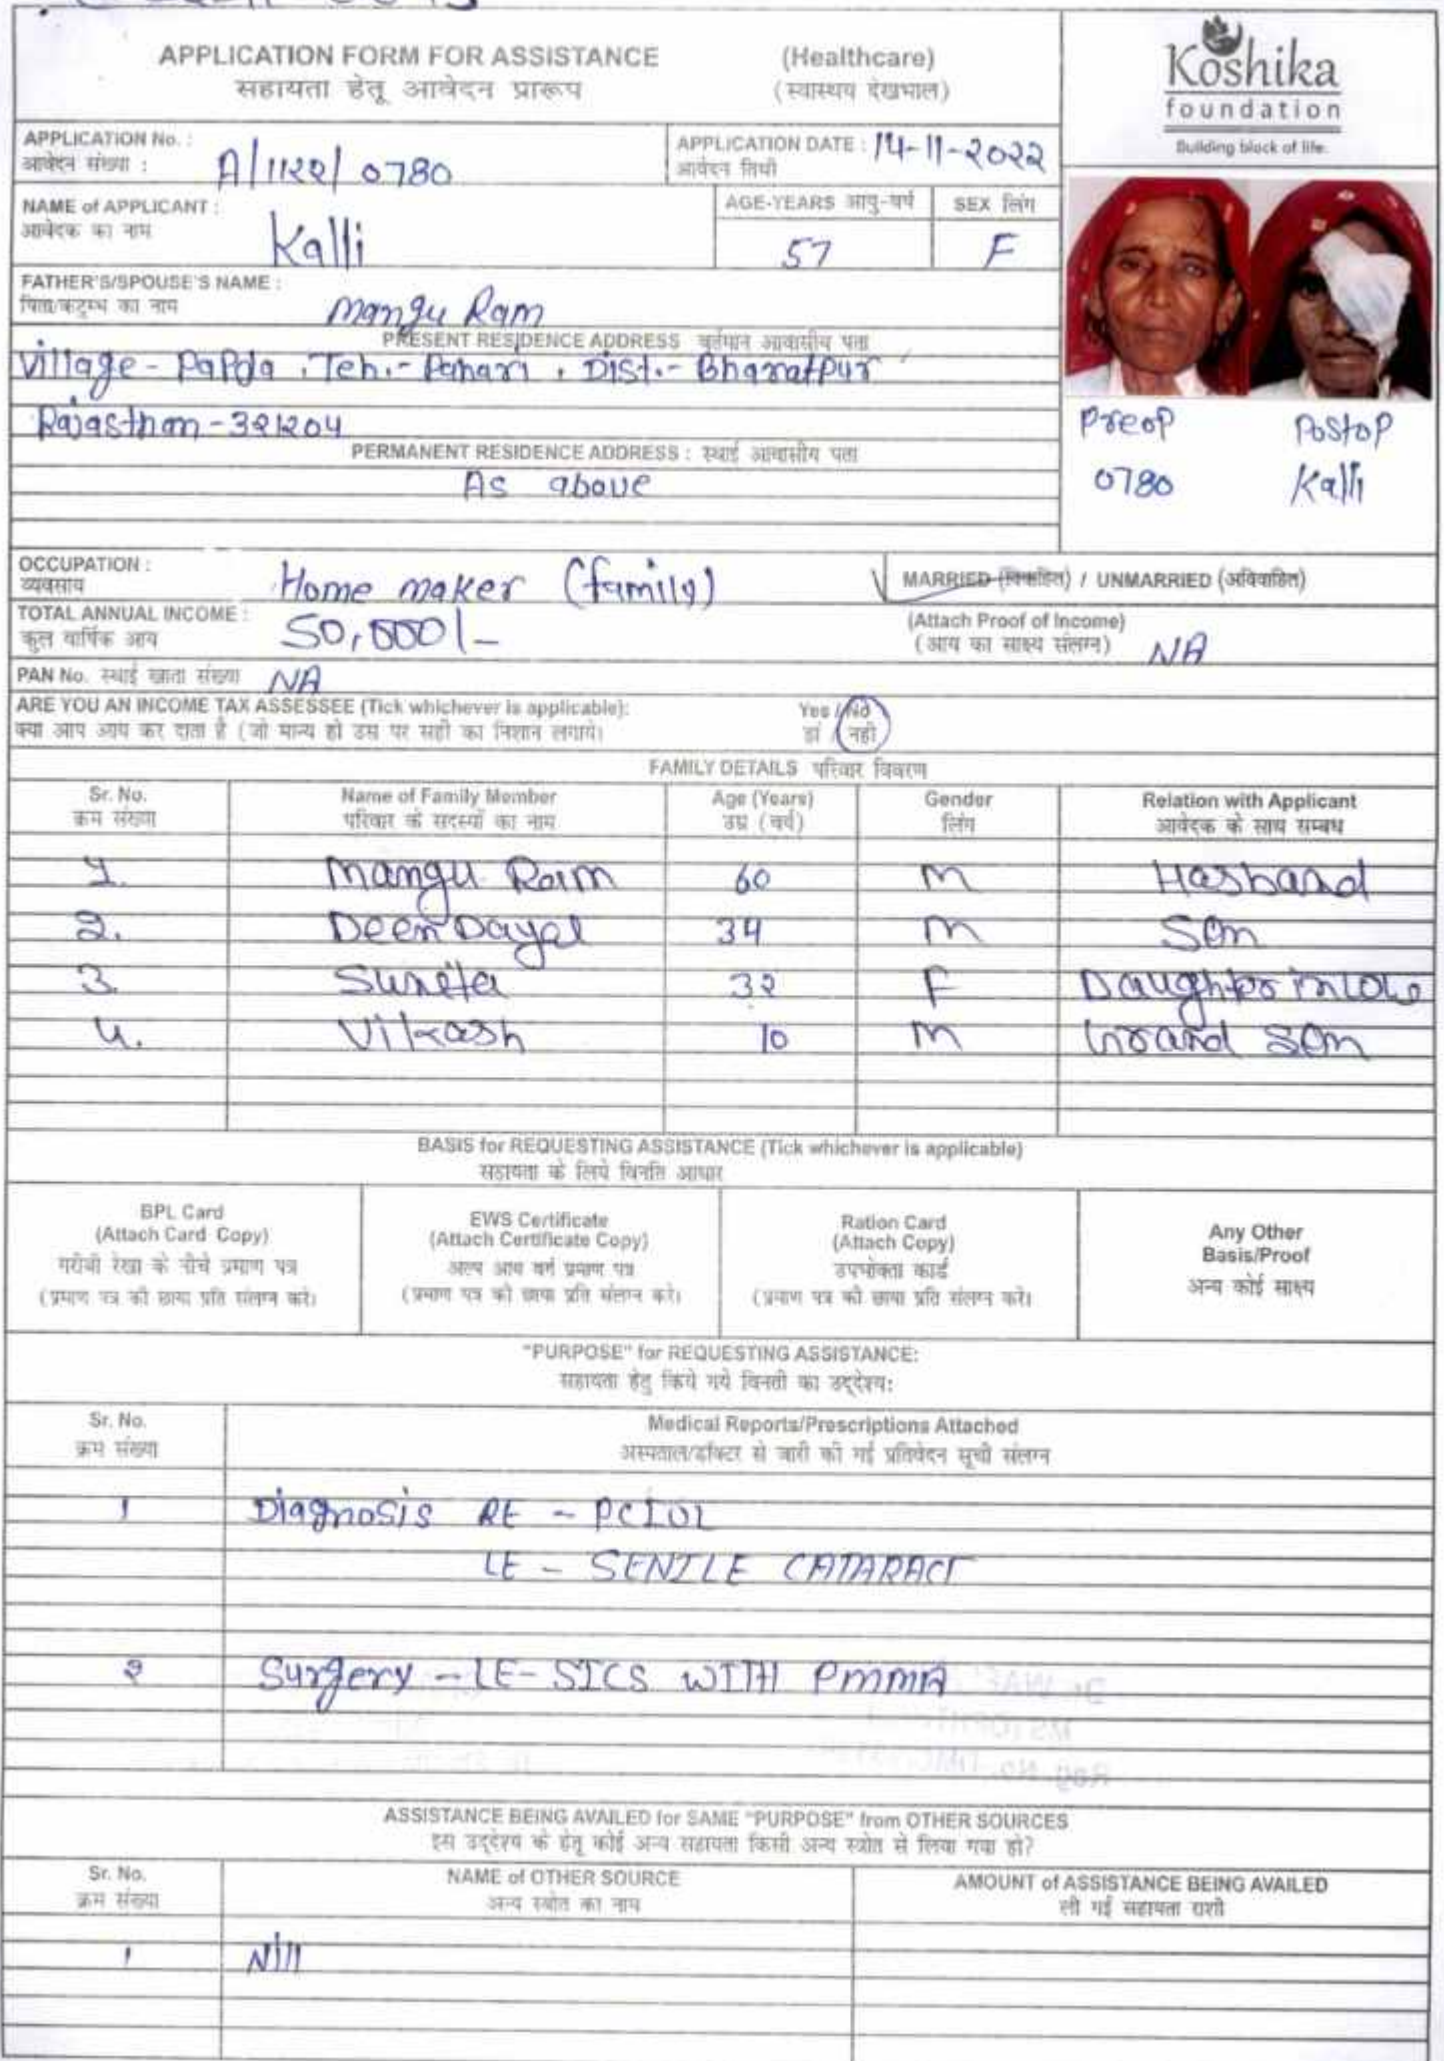 APPLICATION FORM FOR ASSISTANCE (Healthcare)
सहायता हेतू आवेदन प्रारूप (स्वास्थय देखभाल)
Koshika
foundation
Building block of life.
APPLICATION No. :
आवेदन संख्या : A/1122/0780
APPLICATION DATE : 14-11-2022
आवेदन तिथी
NAME of APPLICANT :
आवेदक का नाम Kalli
AGE-YEARS आयु-वर्ष
57
SEX लिंग
F
FATHER'S/SPOUSE'S NAME :
पिता/कटुम्भ का नाम Mangu Ram
PRESENT RESIDENCE ADDRESS वर्तमान आवासीय पता
Village - Papda, Teh.- Pahari, Dist.- Bharatpur
Rajasthan - 321204
PERMANENT RESIDENCE ADDRESS : स्थाई आवासीय पता
As above
Preop Postop
0780 Kalli
OCCUPATION :
व्यवसाय Home maker (family)
MARRIED (विवाहित) / UNMARRIED (अविवाहित)
TOTAL ANNUAL INCOME :
कुल वार्षिक आय 50,000/-
(Attach Proof of Income)
(आय का साक्ष्य संलग्न) NA
PAN No. स्थाई खाता संख्या NA
ARE YOU AN INCOME TAX ASSESSEE (Tick whichever is applicable): Yes / No
क्या आप आय कर दाता है (जो मान्य हो उस पर सही का निशान लगाये। हां / नही
FAMILY DETAILS परिवार विवरण
Sr. No. Name of Family Member Age (Years) Gender Relation with Applicant
क्रम संख्या परिवार के सदस्यों का नाम उम्र (वर्ष) लिंग आवेदक के साथ सम्बध
1. Mangu Ram 60 M Hasband
2. Deen Dayal 34 M Son
3. Sunita 32 F Daughter in low
4. Vikash 10 M Grand Son
BASIS for REQUESTING ASSISTANCE (Tick whichever is applicable)
सहायता के लिये विनति आधार
BPL Card
(Attach Card Copy)
गरीबी रेखा के नीचे प्रमाण पत्र
(प्रमाण पत्र की छाया प्रति संलग्न करे।
EWS Certificate
(Attach Certificate Copy)
अल्प आय वर्ग प्रमाण पत्र
(प्रमाण पत्र की छाया प्रति संलग्न करे।
Ration Card
(Attach Copy)
उपभोक्ता कार्ड
(प्रमाण पत्र की छाया प्रति संलग्न करे।
Any Other
Basis/Proof
अन्य कोई साक्ष्य
"PURPOSE" for REQUESTING ASSISTANCE:
सहायता हेतु किये गये विनती का उद्देश्य:
Sr. No. Medical Reports/Prescriptions Attached
क्रम संख्या अस्पताल/डॉक्टर से जारी की गई प्रतिवेदन सूची संलग्न
1 Diagnosis RE - PCIOL
LE - SENILE CATARACT
2 Surgery - LE - SICS WITH PMMA
ASSISTANCE BEING AVAILED for SAME "PURPOSE" from OTHER SOURCES
इस उद्देश्य के हेतू कोई अन्य सहायता किसी अन्य स्त्रोत से लिया गया हो?
Sr. No. NAME of OTHER SOURCE AMOUNT of ASSISTANCE BEING AVAILED
क्रम संख्या अन्य स्त्रोत का नाम ली गई सहायता राशी
1 Nill